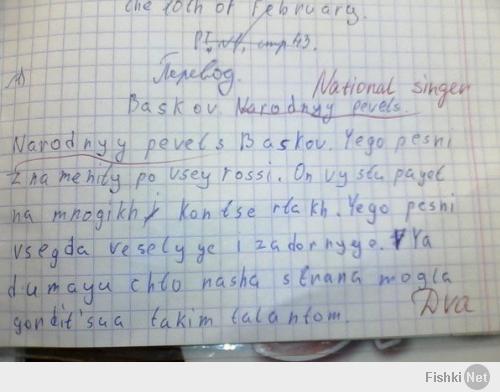 the 10th of February.
P1. №1, стр 43.
1) Перевод.
National singer
Baskov. Narodnyy pevets.
Narodnyy pevets Baskov. Yego pesni
znamenity po vsey rossi. On vystupayet
na mnogikh kontsertakh. Yego pesni
vsegda veselyye i zadornyye. Ya
dumayu chto nasha strana mogla
gordit'sua takim talantom.
Dva
Fishki Net